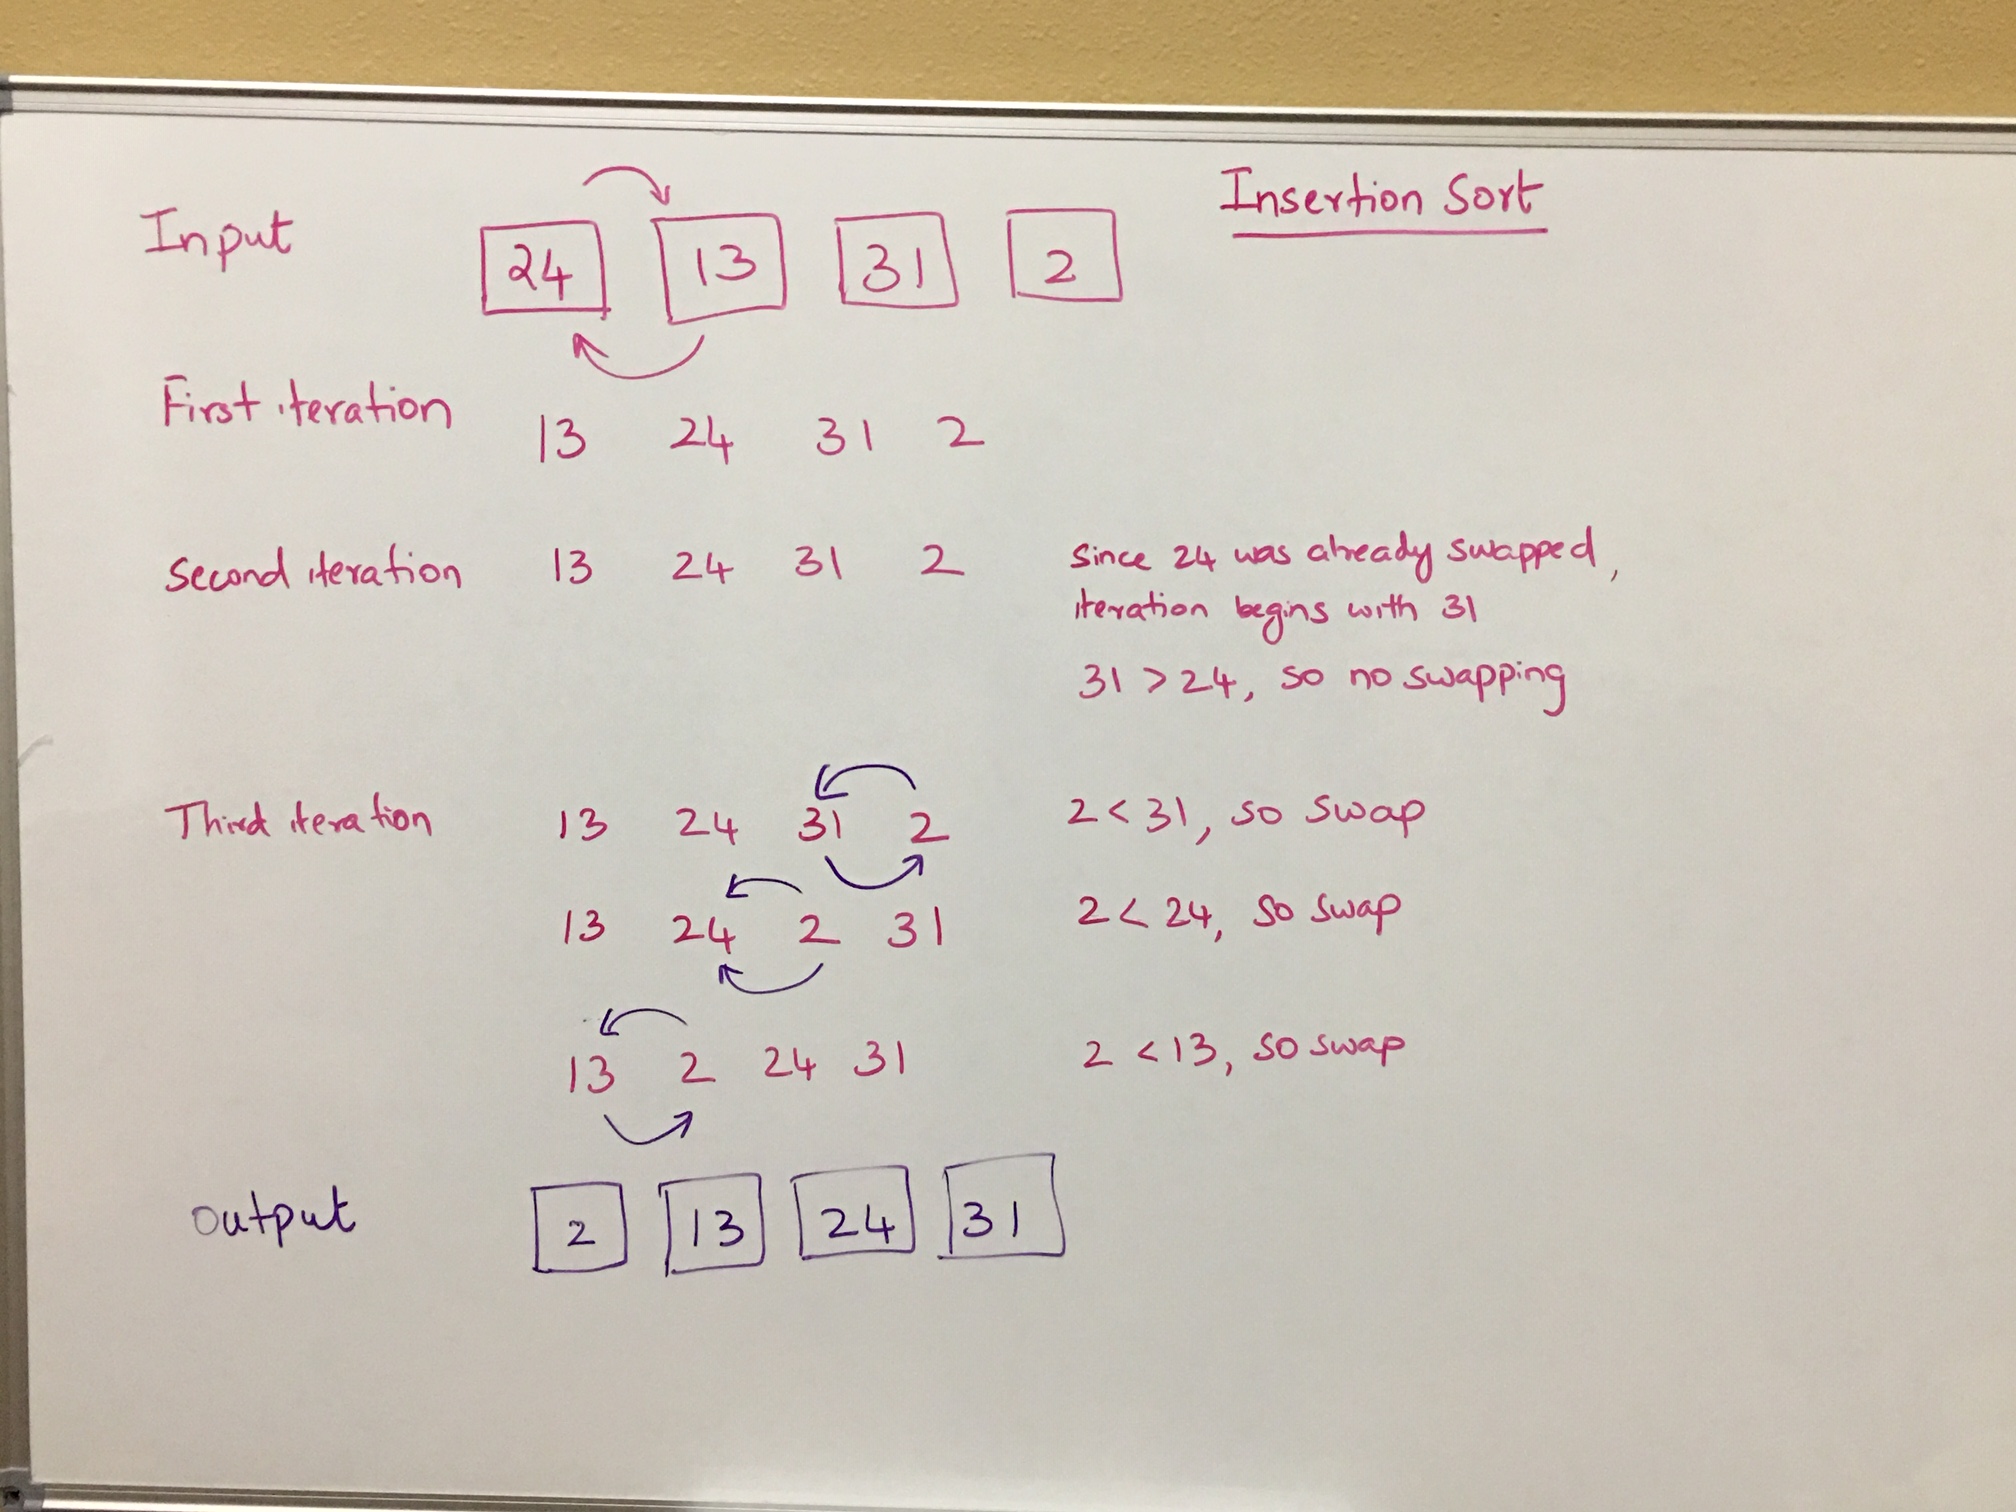 Insertion Sort
Input 24 13 31 2
First iteration 13 24 31 2
Second iteration 13 24 31 2
Since 24 was already swapped,
iteration begins with 31
31 > 24, so no swapping
Third iteration 13 24 31 2 2 < 31, so swap
13 24 2 31 2 < 24, so swap
13 2 24 31 2 < 13, so swap
output 2 13 24 31